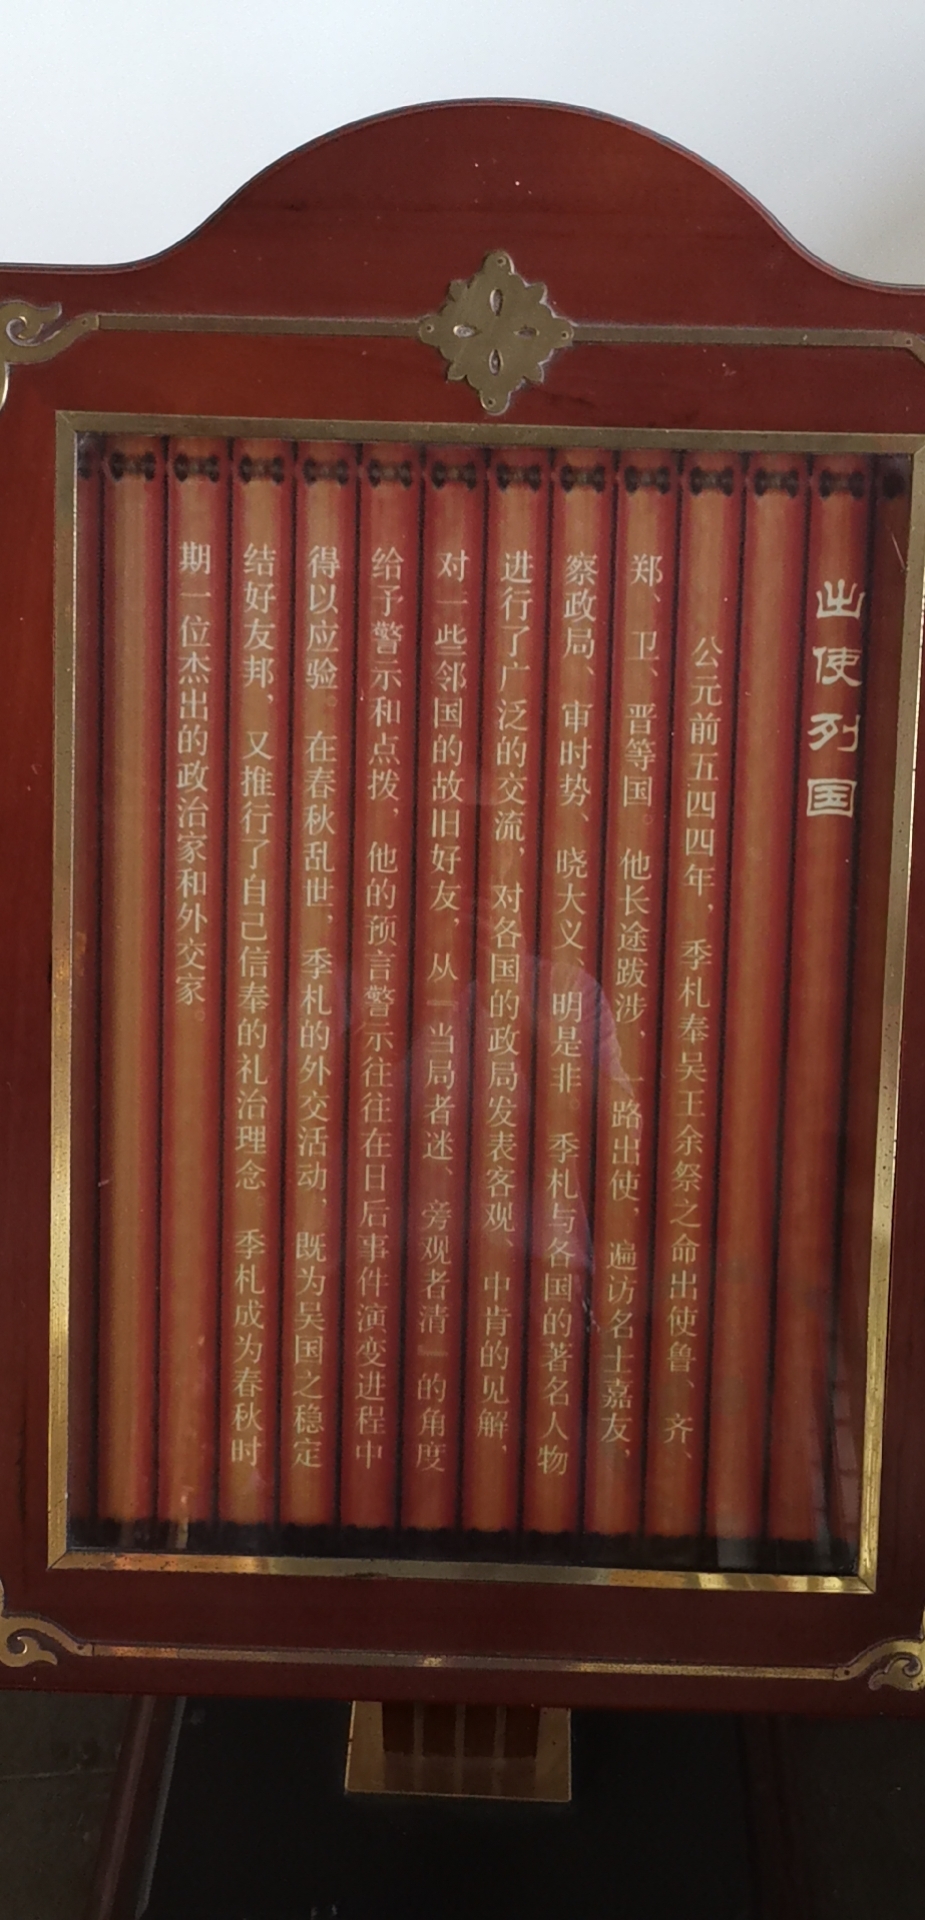 出使列国
公元前五四四年，季札奉吴王余祭之命出使鲁、齐、
郑、卫、晋等国。他长途跋涉，一路出使，遍访名士嘉友，
察政局、审时势、晓大义、明是非。季札与各国的著名人物
进行了广泛的交流，对各国的政局发表客观、中肯的见解，
对一些邻国的故旧好友，从『当局者迷、旁观者清』的角度
给予警示和点拨，他的预言警示往往在日后事件演变进程中
得以应验。在春秋乱世，季札的外交活动，既为吴国之稳定
结好友邦，又推行了自己信奉的礼治理念。季札成为春秋时
期一位杰出的政治家和外交家。